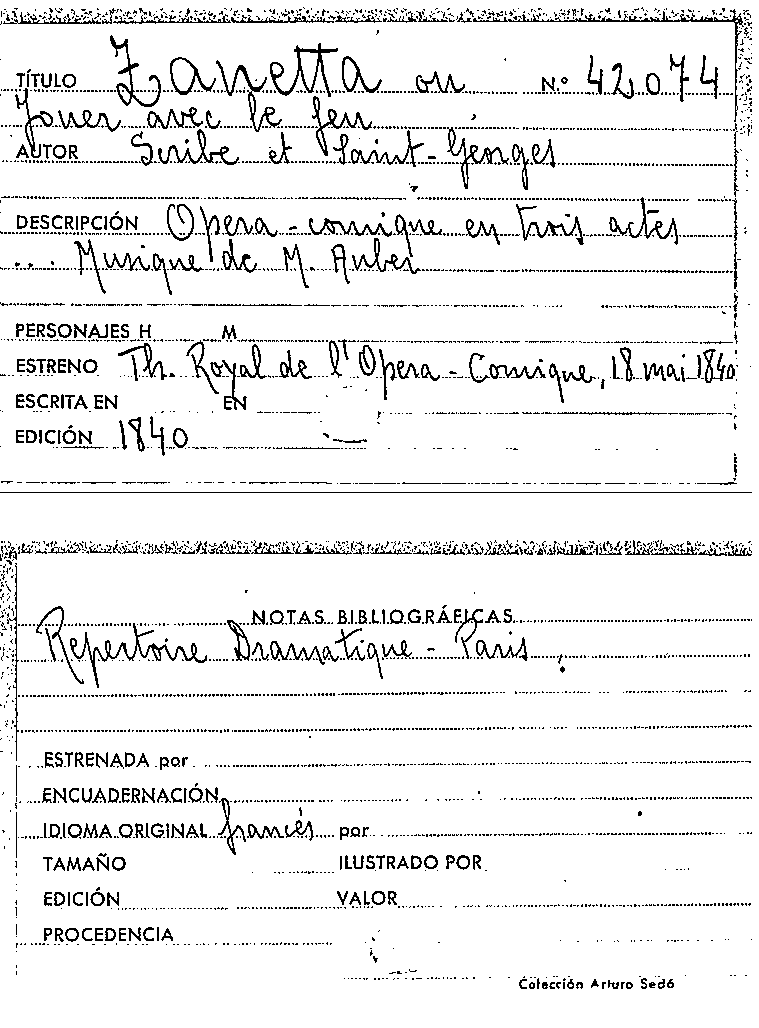 TÍTULO Zanetta ou N.º 42074
Jouer avec le feu
AUTOR Scribe et Saint-Georges
DESCRIPCIÓN Opera-comique en trois actes
... Musique de M. Auber
PERSONAJES H M
ESTRENO Th. Royal de l'Opera-Comique, 18 mai 1840
ESCRITA EN EN
EDICIÓN 1840
NOTAS BIBLIOGRÁFICAS
Repertoire Dramatique - Paris.
ESTRENADA por
ENCUADERNACIÓN
IDIOMA ORIGINAL francés por
TAMAÑO ILUSTRADO POR
EDICIÓN VALOR
PROCEDENCIA
Colección Arturo Sedó